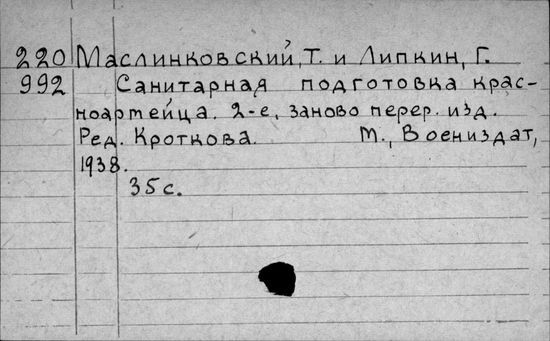 220 Маслинковский, Т. и Липкин, Г.
992 Санитарная подготовка крас-
ноармейца. 2-е, заново перер. изд.
Ред. Кроткова. М., Воениздат,
1938.
35 с.